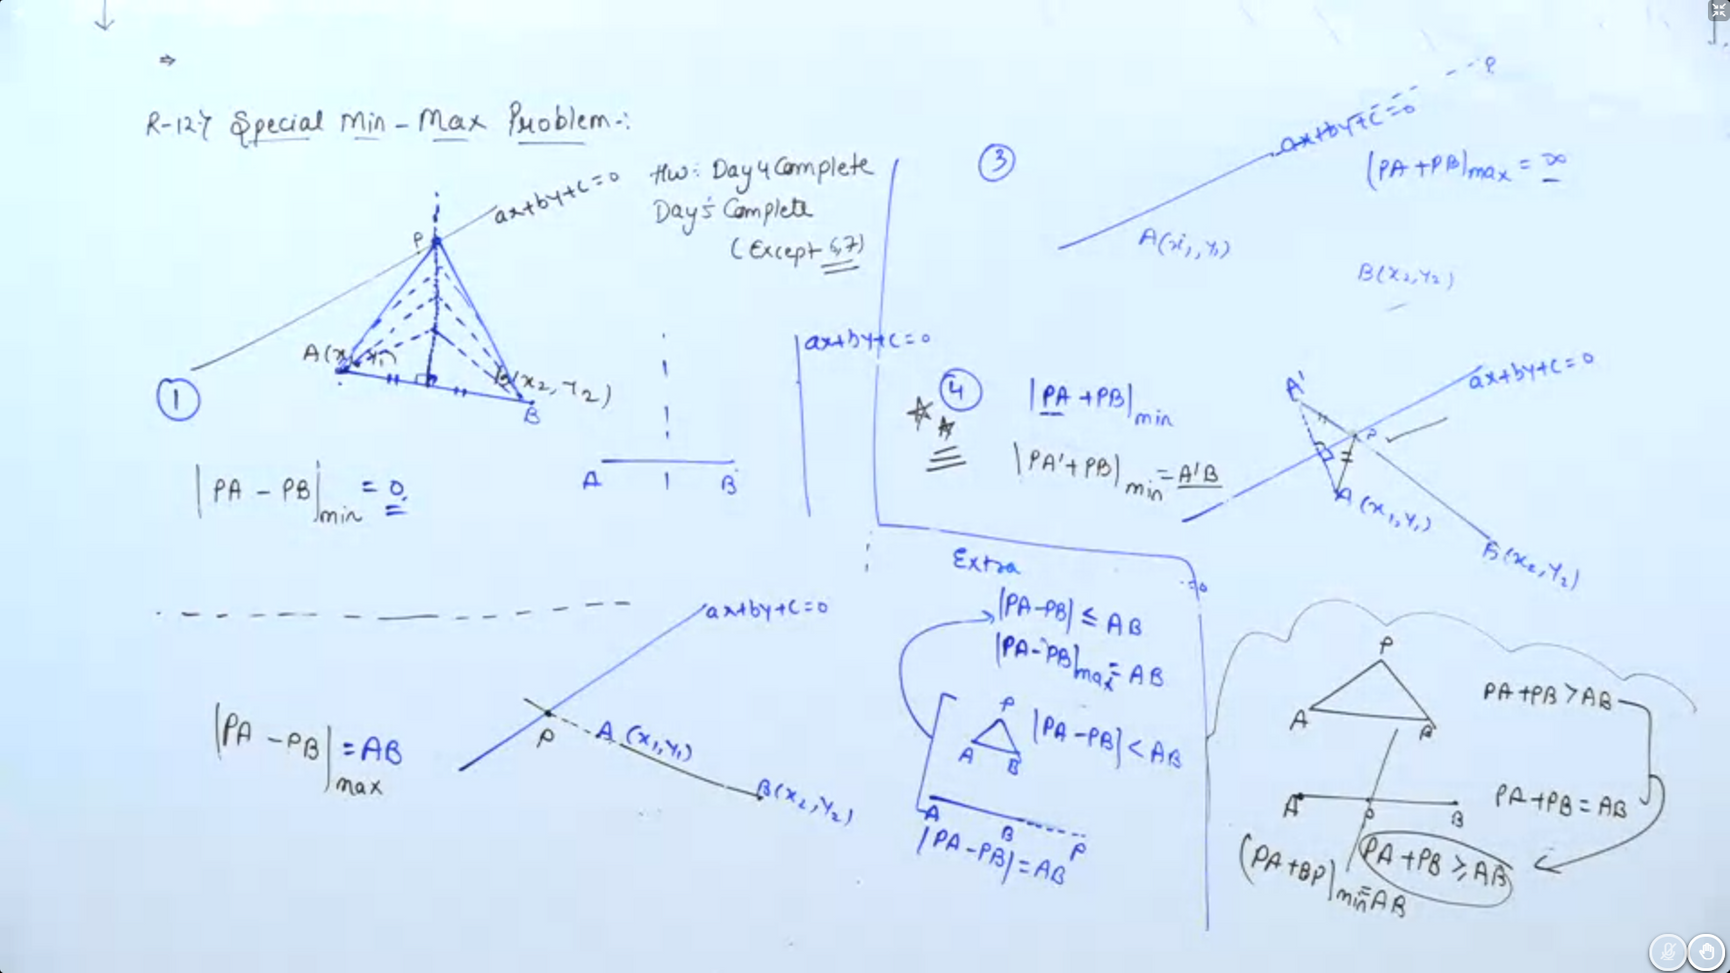 ⇒
R-12 Special Min - Max Problem -:
HW: Day 4 Complete
Day 5 Complete
(Except 6,7)
ax+by+c=0
P
A(x₁, y₁)
B(x₂, y₂)
B
①
|PA - PB|min = 0
ax+by+c=0
A
B
ax+by+c=0
P
A (x₁,y₁)
B(x₂,y₂)
|PA - PB|max = AB
③
P
ax+by+c=0
|PA + PB|max = ∞
A(x₁,y₁)
B(x₂,y₂)
④
|PA + PB|min
|PA' + PB|min = A'B
ax+by+c=0
A'
P
A (x₁,y₁)
B(x₂,y₂)
Extra
=0
|PA-PB| ≤ AB
|PA-PB|max = AB
P
A
B
|PA - PB| < AB
A
B
P
|PA - PB| = AB
P
A
B
PA + PB > AB
A
P
B
PA + PB = AB
PA + PB ≥ AB
(PA+BP)min = AB